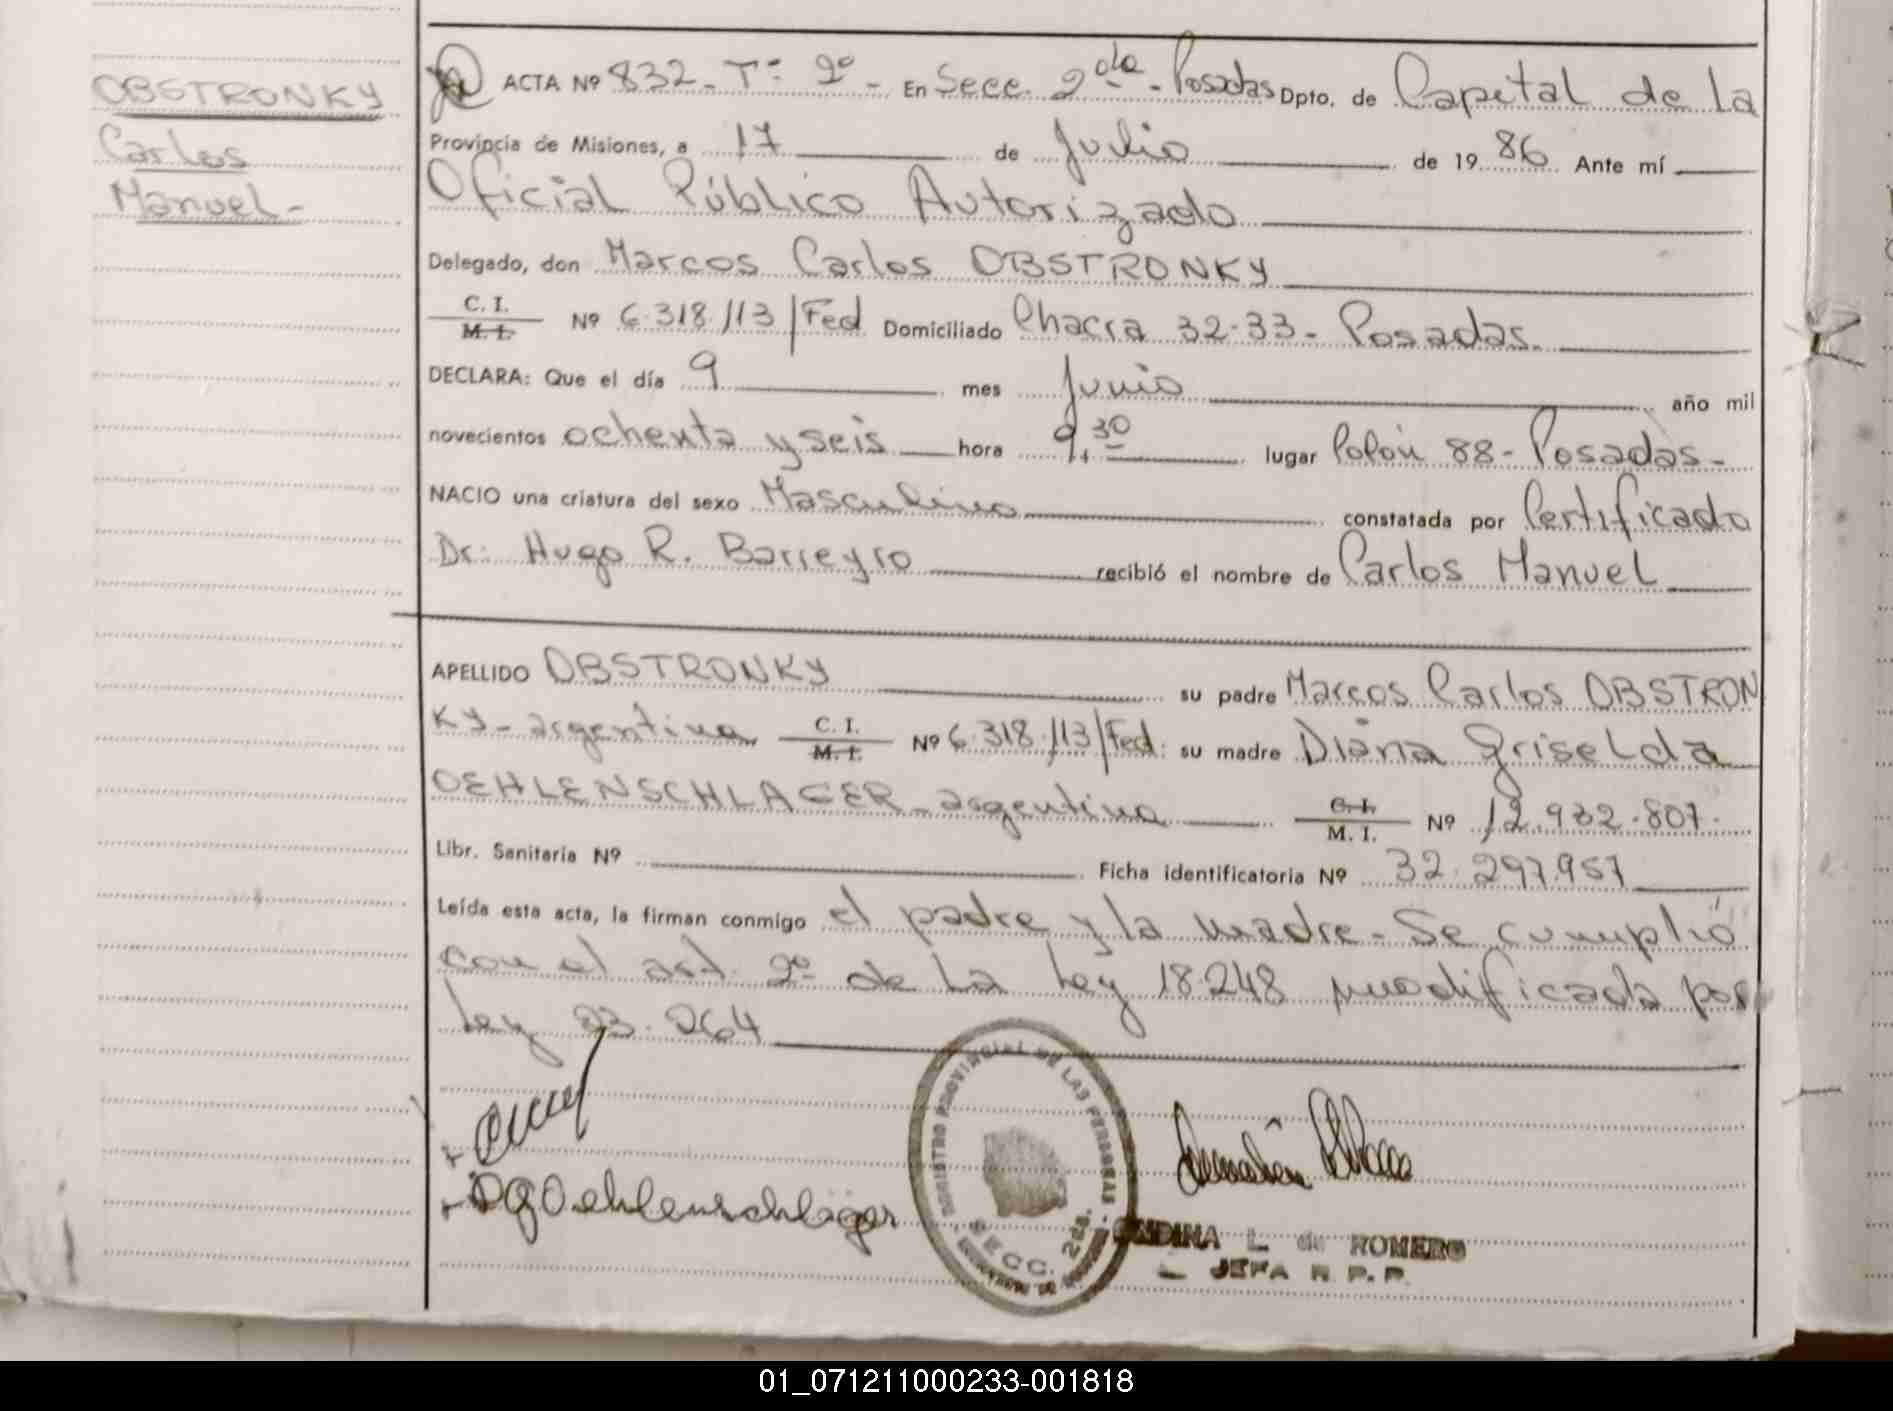 OBSTRONKY
Carlos
Manuel-
ACTA Nº 832- Tº 2º - En Secc. 2da - Posadas Dpto. de Capital de la
Provincia de Misiones, a 17 de Julio de 1986. Ante mí
Oficial Público Autorizado
Delegado, don Marcos Carlos OBSTRONKY
C. I.
M. I. Nº 6.318.113/Fed Domiciliado Chacra 32-33- Posadas.
DECLARA: Que el día 9 mes Junio año mil
novecientos ochenta y seis hora 9,30 lugar Colón 88- Posadas-
NACIO una criatura del sexo Masculino constatada por Certificado
Dr. Hugo R. Barreyro recibió el nombre de Carlos Manuel
APELLIDO OBSTRONKY su padre Marcos Carlos OBSTRON
KY- argentino C. I.
M. I. Nº 6.318.113/Fed. su madre Diana Griselda
OEHLENSCHLAGER- argentina C. I.
M. I. Nº 12.932.807.
Libr. Sanitaria Nº Ficha identificatoria Nº 32.297.957
Leída esta acta, la firman conmigo el padre y la madre- Se cumplió
con el art. 2º de la Ley 18.248 modificada por
Ley 23.264
DGOehlenschlager
REGISTRO PROVINCIAL DE LAS PERSONAS
SECC. 2da.
ONDINA L. de ROMERO
JEFA R. P. P.
01_071211000233-001818